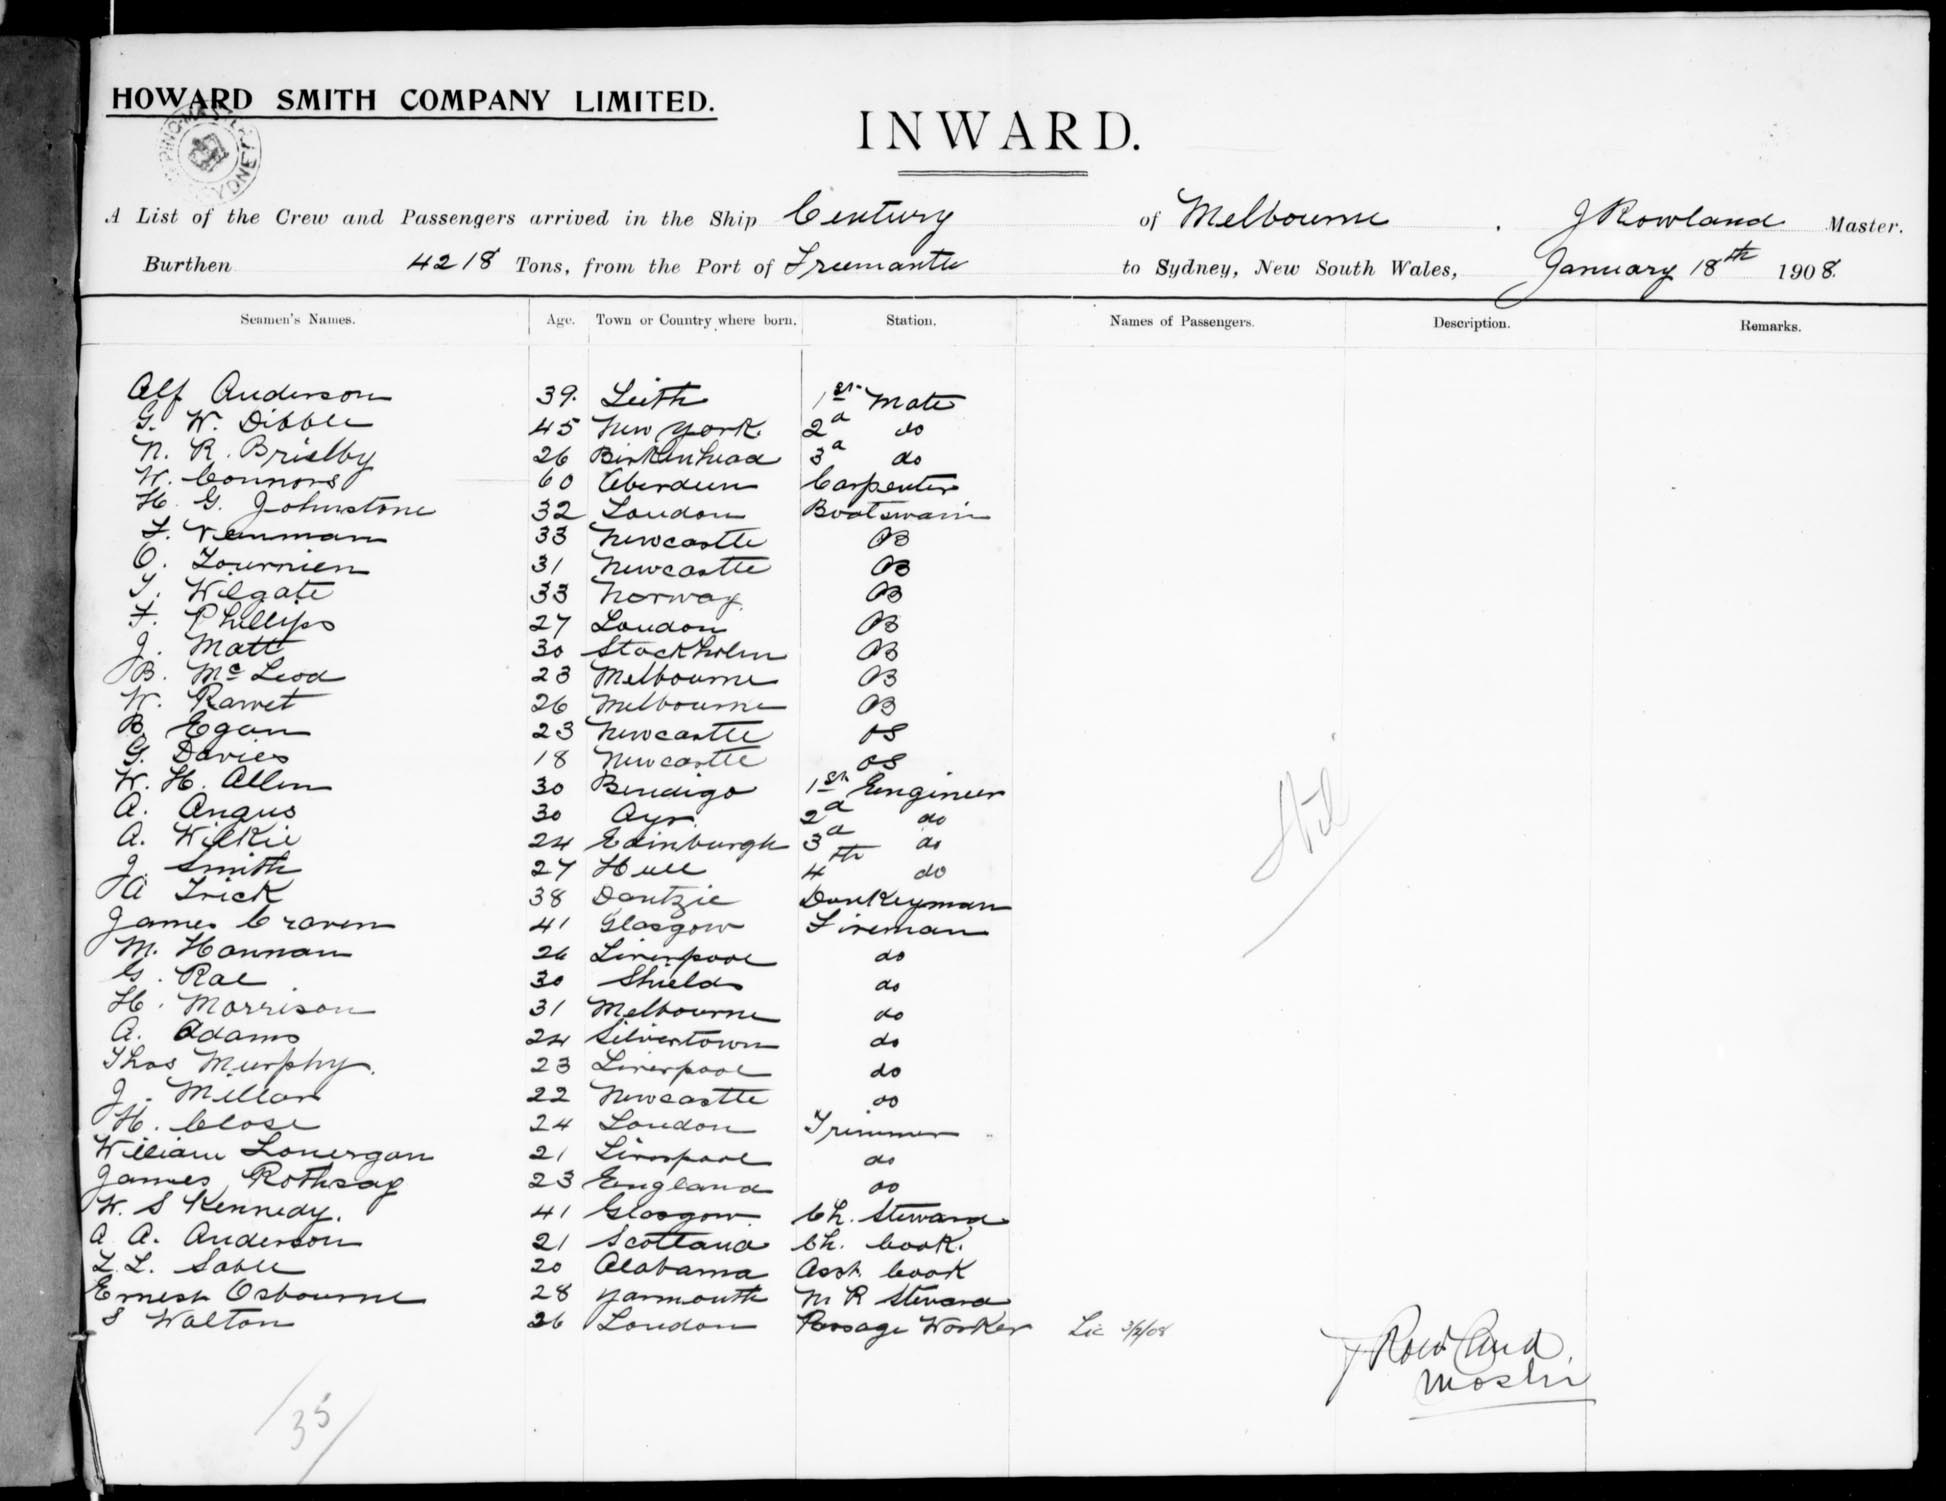 HOWARD SMITH COMPANY LIMITED.
SYDNEY
INWARD.
A List of the Crew and Passengers arrived in the Ship Century of Melbourne. J Rowland Master.
Burthen 4218 Tons, from the Port of Freemantle to Sydney, New South Wales, January 18th 1908.
Seamen's Names. Age. Town or Country where born. Station. Names of Passengers. Description. Remarks.
Alf Anderson 39. Leith 1st Mate
G. W. Dibble 45 New York 2d do
N. R. Brielby 26 Birkenhead 3d do
W. Connors 60 Aberdeen Carpenter
H. G. Johnstone 32 London Boatswain
F. Newman 33 Newcastle AB
O. Fournien 31 Newcastle AB
T. Wilgate 33 Norway. AB
F. Phillips 27 London AB
J. Matt 30 Stockholm AB
B. McLeod 23 Melbourne AB
W. Rawet 26 Melbourne AB
B. Egan 23 Newcastle OS
G. Davies 18 Newcastle OS
W. H. Allen 30 Bendigo 1st Engineer
A. Angus 30 Ayr. 2d do
A. Wilkie 24 Edinburgh 3d do
J. Smith 27 Hull 4th do
A Frick 38 Dantzic Donkeyman
James Craven 41 Glasgow Fireman
M. Hannan 26 Liverpool do
G. Rae 30 Shields do
H. Morrison 31 Melbourne do
A. Adams 24 Silvertown do
Thos Murphy. 23 Liverpool do
J. Millar 22 Newcastle do
H. Close 24 London Trimmer
William Lonergan 21 Liverpool do
James Rothsay 23 England do
W. S Kennedy. 41 Glasgow. Ch. Steward
A A. Anderson 21 Scotland Ch. Cook.
L. L. Sable 20 Alabama Asst. Cook
Ernest Osbourne 28 Yarmouth M R Steward
S Walton 26 London Passage Worker Lic 3/2/08
J Rowland.
Master
35